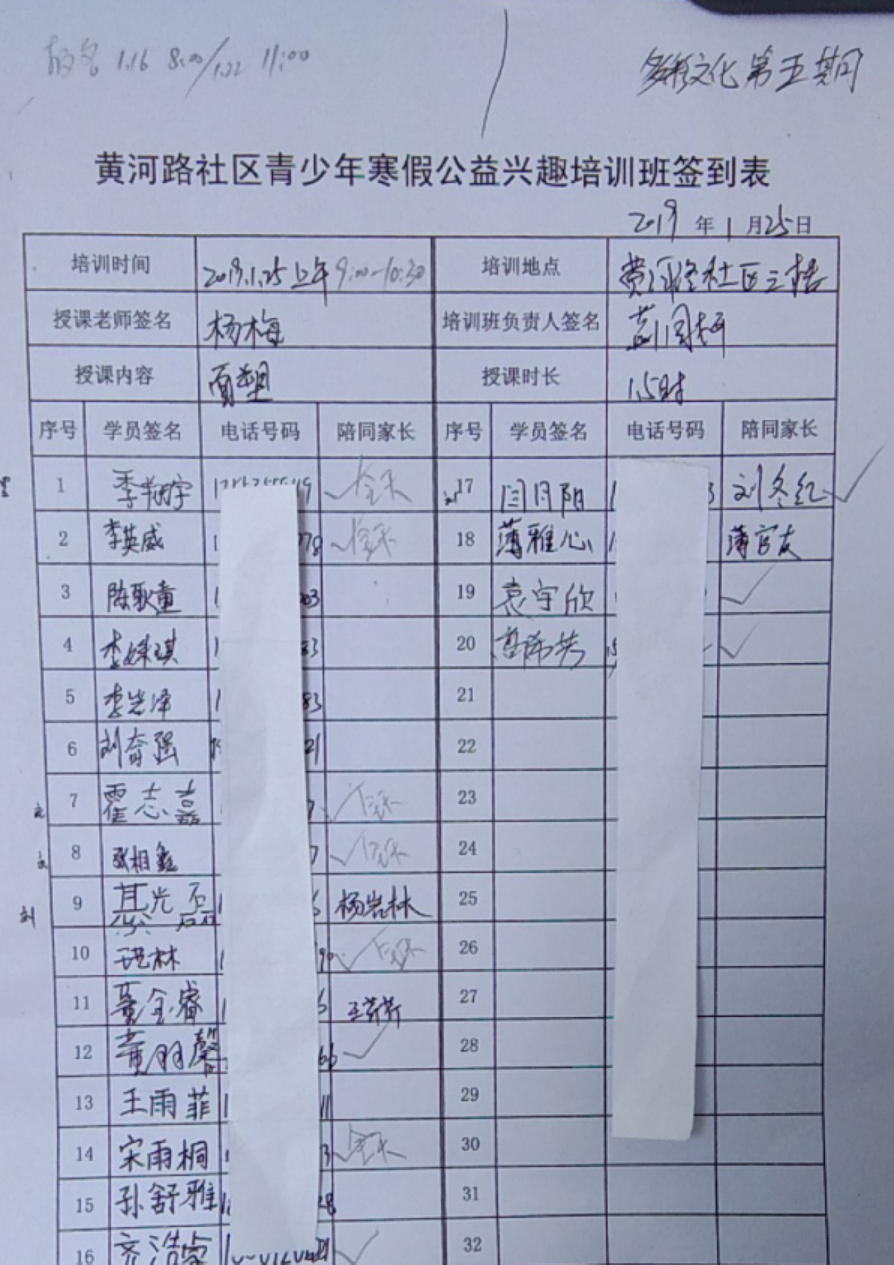 1.16 8:00/1.22 11:00
文化第五期
黄河路社区青少年寒假公益兴趣培训班签到表
2019年1月25日
培训时间 2019.1.25上午9:00-10:30 培训地点 黄河路社区三楼
授课老师签名 杨梅 培训班负责人签名
授课内容 面塑 授课时长 1.5时
序号 学员签名 电话号码 陪同家长 序号 学员签名 电话号码 陪同家长
1 季翔宇 17 闫月阳 刘冬红
2 李英威 78 18 薄雅心 薄官友
3 陈歌童 03 19 袁宇欣
4 李姝琪 33 20 高希芳
5 李岩泽 83 21
6 刘奋强 21 22
7 霍志嘉 23
8 张相鑫 7 24
9 杨岩林 25
10 26
11 董金睿 6 王芹芹 27
12 黄羽馨 66 28
13 王雨菲 11 29
14 宋雨桐 3 30
15 孙舒雅 28 31
16 齐浩睿 32
刘